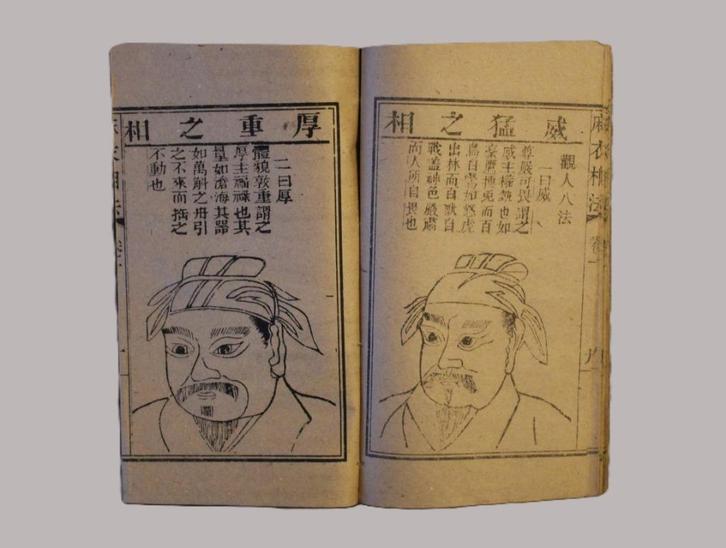 麻衣相法
卷一
威猛之相
觀人八法
一曰威
尊嚴可畏謂之
威主權勢也如
豪鷹搏兎而百
鳥自驚如怒虎
出林而百獸自
戰蓋神色嚴肅
而人所自畏也
厚重之相
二曰厚
體貌敦重謂之
厚主福祿也其
量如滄海其器
如萬斛之舟引
之不來而搖之
不動也